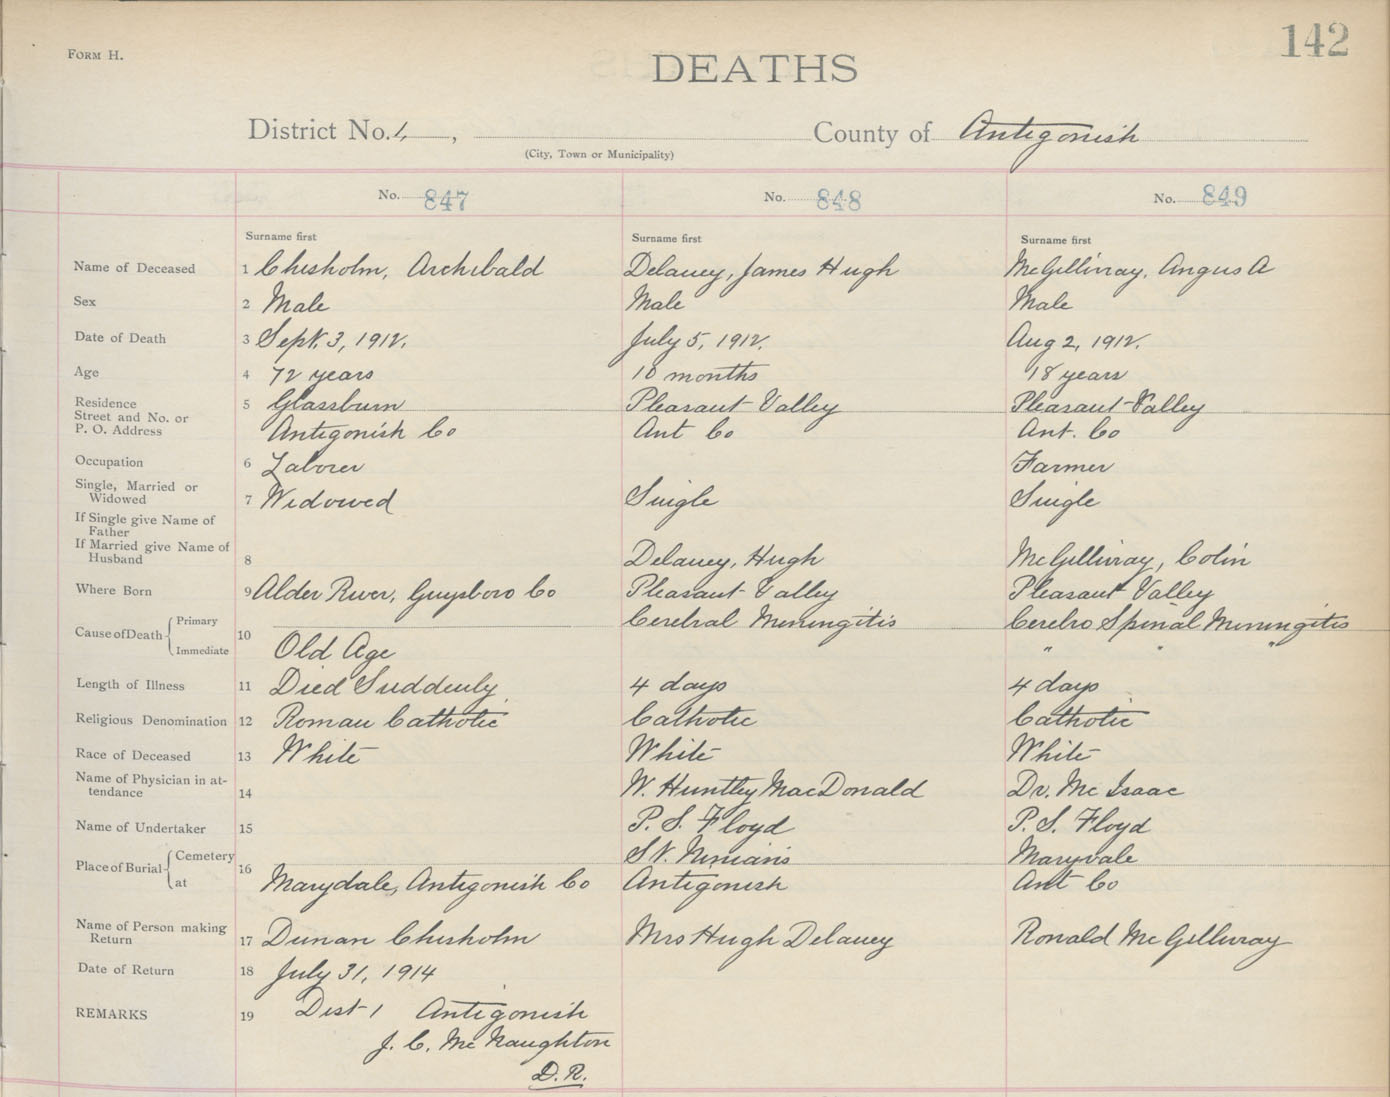 FORM H.
142
DEATHS
District No. 1, , County of Antigonish
(City, Town or Municipality)
No. 847 No. 848 No. 849
Surname first Surname first Surname first
Name of Deceased 1 Chisholm, Archibald Delaney, James Hugh McGillivray, Angus A
Sex 2 Male Male Male
Date of Death 3 Sept. 3, 1912. July 5, 1912. Aug 2, 1912.
Age 4 72 years 10 months 18 years
Residence 5 Glassburn Pleasant Valley Pleasant Valley
Street and No. or
P. O. Address Antigonish Co Ant Co Ant. Co
Occupation 6 Laborer Farmer
Single, Married or
Widowed 7 Widowed Single Single
If Single give Name of
Father
If Married give Name of
Husband 8 Delaney, Hugh McGillivray, Colin
Where Born 9 Alder River, Guysboro Co Pleasant Valley Pleasant Valley
Cause of Death Primary 10 Cerebral Meningitis Cerebro Spinal Meningitis
Immediate Old Age " " "
Length of Illness 11 Died Suddenly 4 days 4 days
Religious Denomination 12 Roman Catholic Catholic Catholic
Race of Deceased 13 White White White
Name of Physician in at-
tendance 14 W. Huntley MacDonald Dr. Mc Isaac
Name of Undertaker 15 P. S. Floyd P. S. Floyd
Place of Burial Cemetery 16 St. Ninians Maryvale
at Marydale, Antigonish Co Antigonish Ant Co
Name of Person making
Return 17 Dunan Chisholm Mrs Hugh Delaney Ronald McGillivray
Date of Return 18 July 31, 1914
REMARKS 19 Dist 1 Antigonish
J. C. McNaughton
D.R.